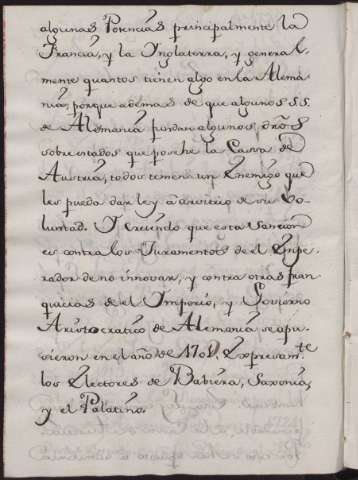 algunas Potencias principalmente la
Francia, y la Ynglaterra, y general-
mente quantos tienen algo en la Alema
nia, porque ademas de que algunos SS.
de Alemania fundan algunos dros
sobre estados que poséhe la Cassa de
Austria, todos temen un Enemigo que
les pueda dar ley a arvitrio de su Vo-
luntad. Y creiendo que esta Sancion
es contra los Juramentos de el Empe-
rador de no innovar, y contra otras fran
quicias de el Imperio, y Govierno
Aristocratico de Alemania se opu-
sieron en el año de Expresamte
los Electores de Babiera, Saxonia,
y el Palatino.